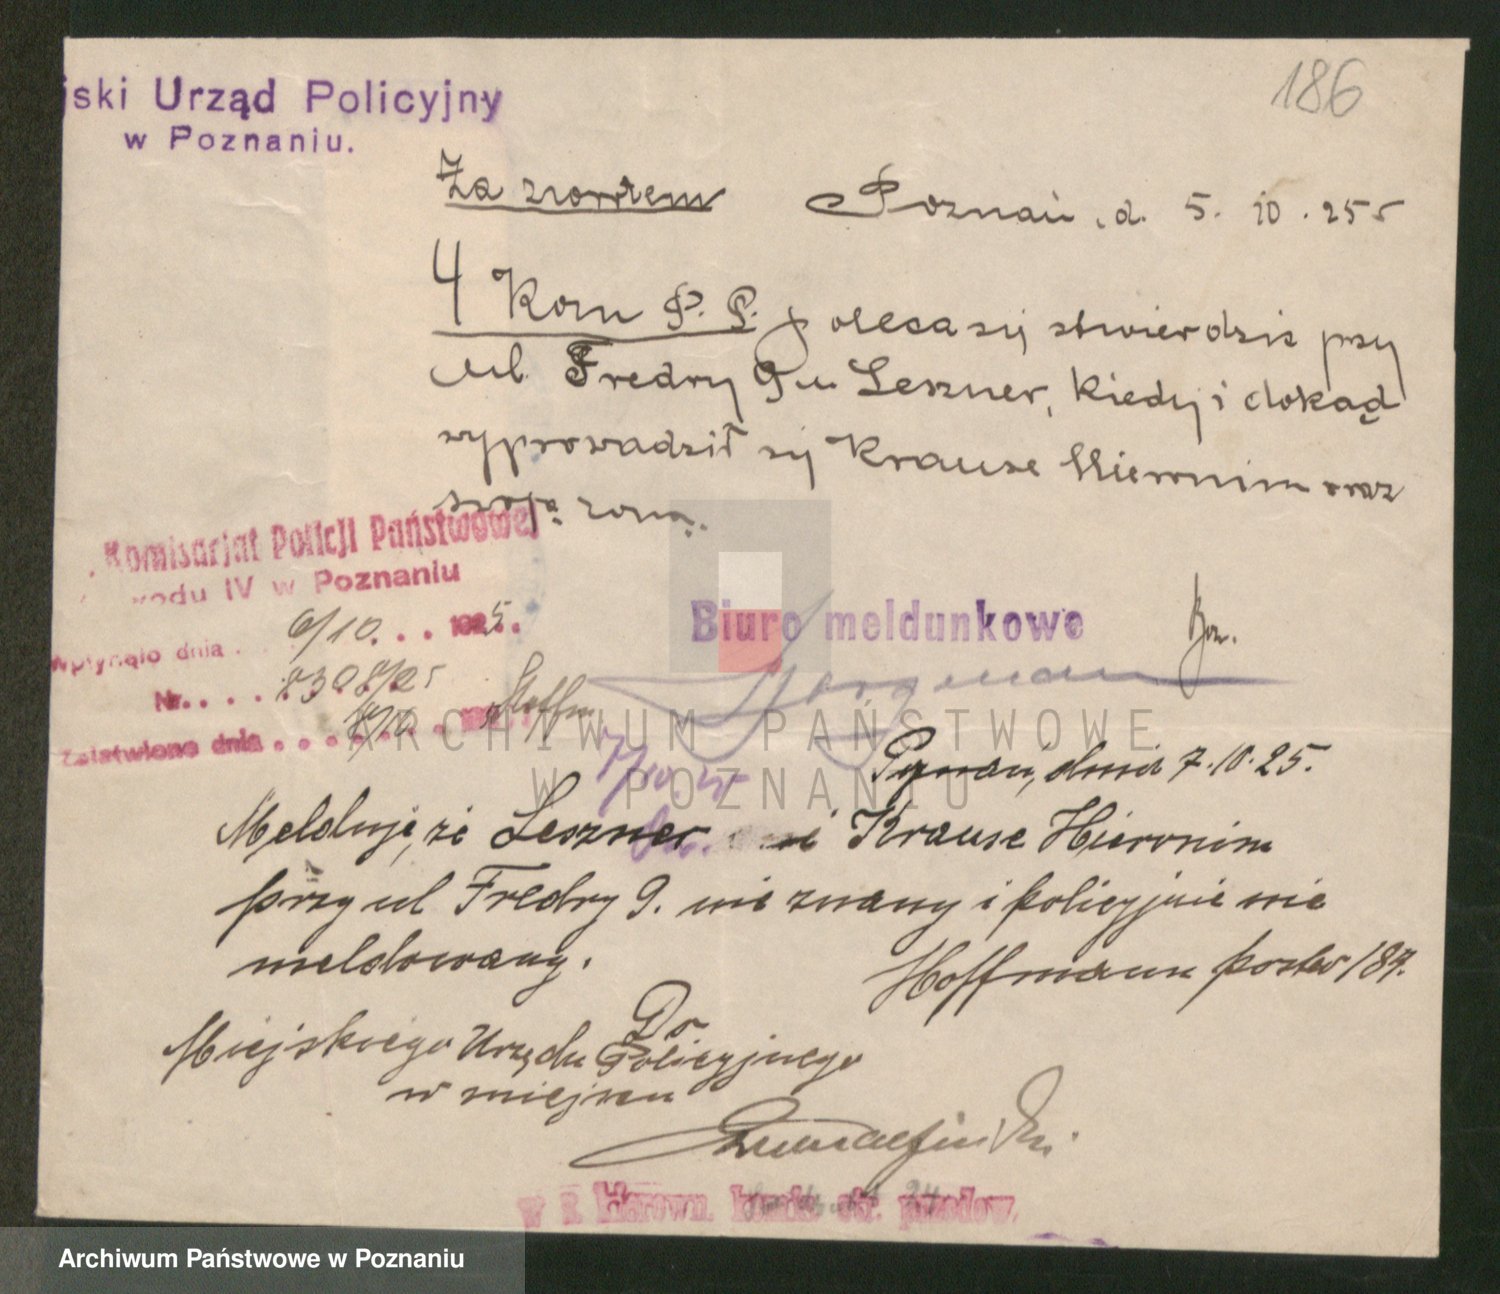 jski Urząd Policyjny
w Poznaniu.
186
Za zwrotem Poznań, d. 5. 10. 25 r
4 Kom P. P. poleca się stwierdzic przy
ul. Fredry 9 u Leszner, kiedy i dokąd
wyprowadził się Krause Hieronim oraz
swoją żoną.
Komisarjat Policji Państwowej
wodu IV w Poznaniu
Wpłynęło dnia 6/10 . . . 1925.
Nr. . . . 8308/25
Załatwiono dnia
Biuro meldunkowe
Poznań, dnia 7.10.25.
Melduję, że Leszner Krause Hieronim
przy ul Fredry 9. nie znany i policyjnie nie
meldowany.
Hoffmann poster/187.
Do
Miejskiego Urzędu Policyjnego
w miejscu
w z. Kierown. komis. str. przodow.
ARCHIWUM PAŃSTWOWE
W POZNANIU
Archiwum Państwowe w Poznaniu